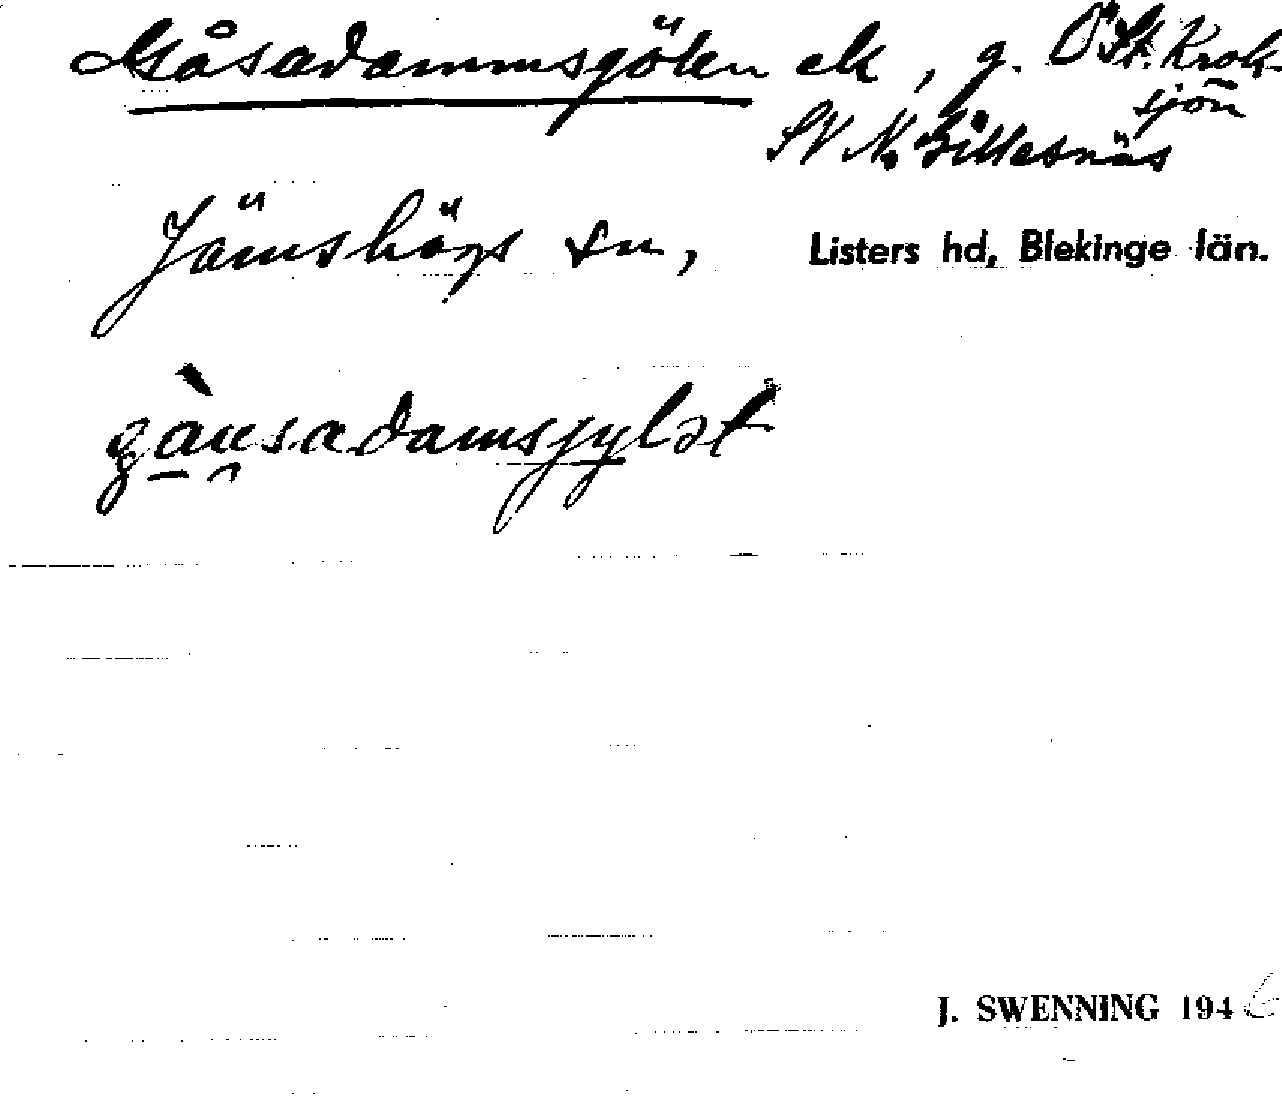 Gåsadammsgölen ek, g. Ö St. Krok-
sjön
SV N. Gillesnäs
Jämshögs sn, Listers hd, Blekinge län.
gàusadamsjylət
J. SWENNING 1946